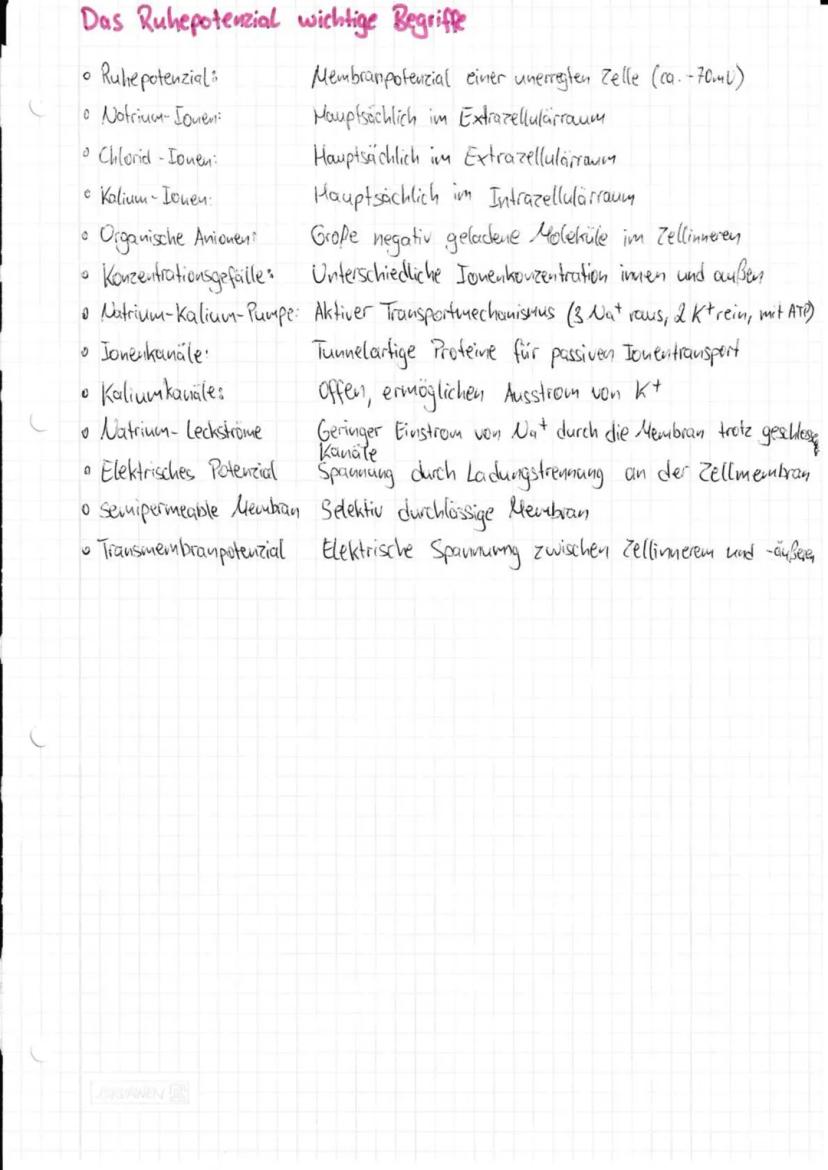 Das Ruhepotenzial wichtige Begriffe
◦ Ruhepotenzial: Membranpotenzial einer unerregten Zelle (ca. -70mV)
◦ Natrium-Ionen: Hauptsächlich im Extrazellulärraum
◦ Chlorid-Ionen: Hauptsächlich im Extrazellulärraum
◦ Kalium-Ionen: Hauptsächlich im Intrazellulärraum
◦ Organische Anionen: Große negativ geladene Moleküle im Zellinneren
◦ Konzentrationsgefälle: Unterschiedliche Ionenkonzentration innen und außen
◦ Natrium-Kalium-Pumpe: Aktiver Transportmechanismus (3 Na⁺ raus, 2 K⁺ rein, mit ATP)
◦ Ionenkanäle: Tunnelartige Proteine für passiven Ionentransport
◦ Kaliumkanäle: Offen, ermöglichen Ausstrom von K⁺
◦ Natrium-Leckströme Geringer Einstrom von Na⁺ durch die Membran trotz
Kanäle
◦ Elektrisches Potenzial Spannung durch Ladungstrennung an der Zellmembran
◦ semipermeable Membran Selektiv durchlässige Membran
◦ Transmembranpotenzial Elektrische Spannung zwischen Zellinnerem und -äußeren